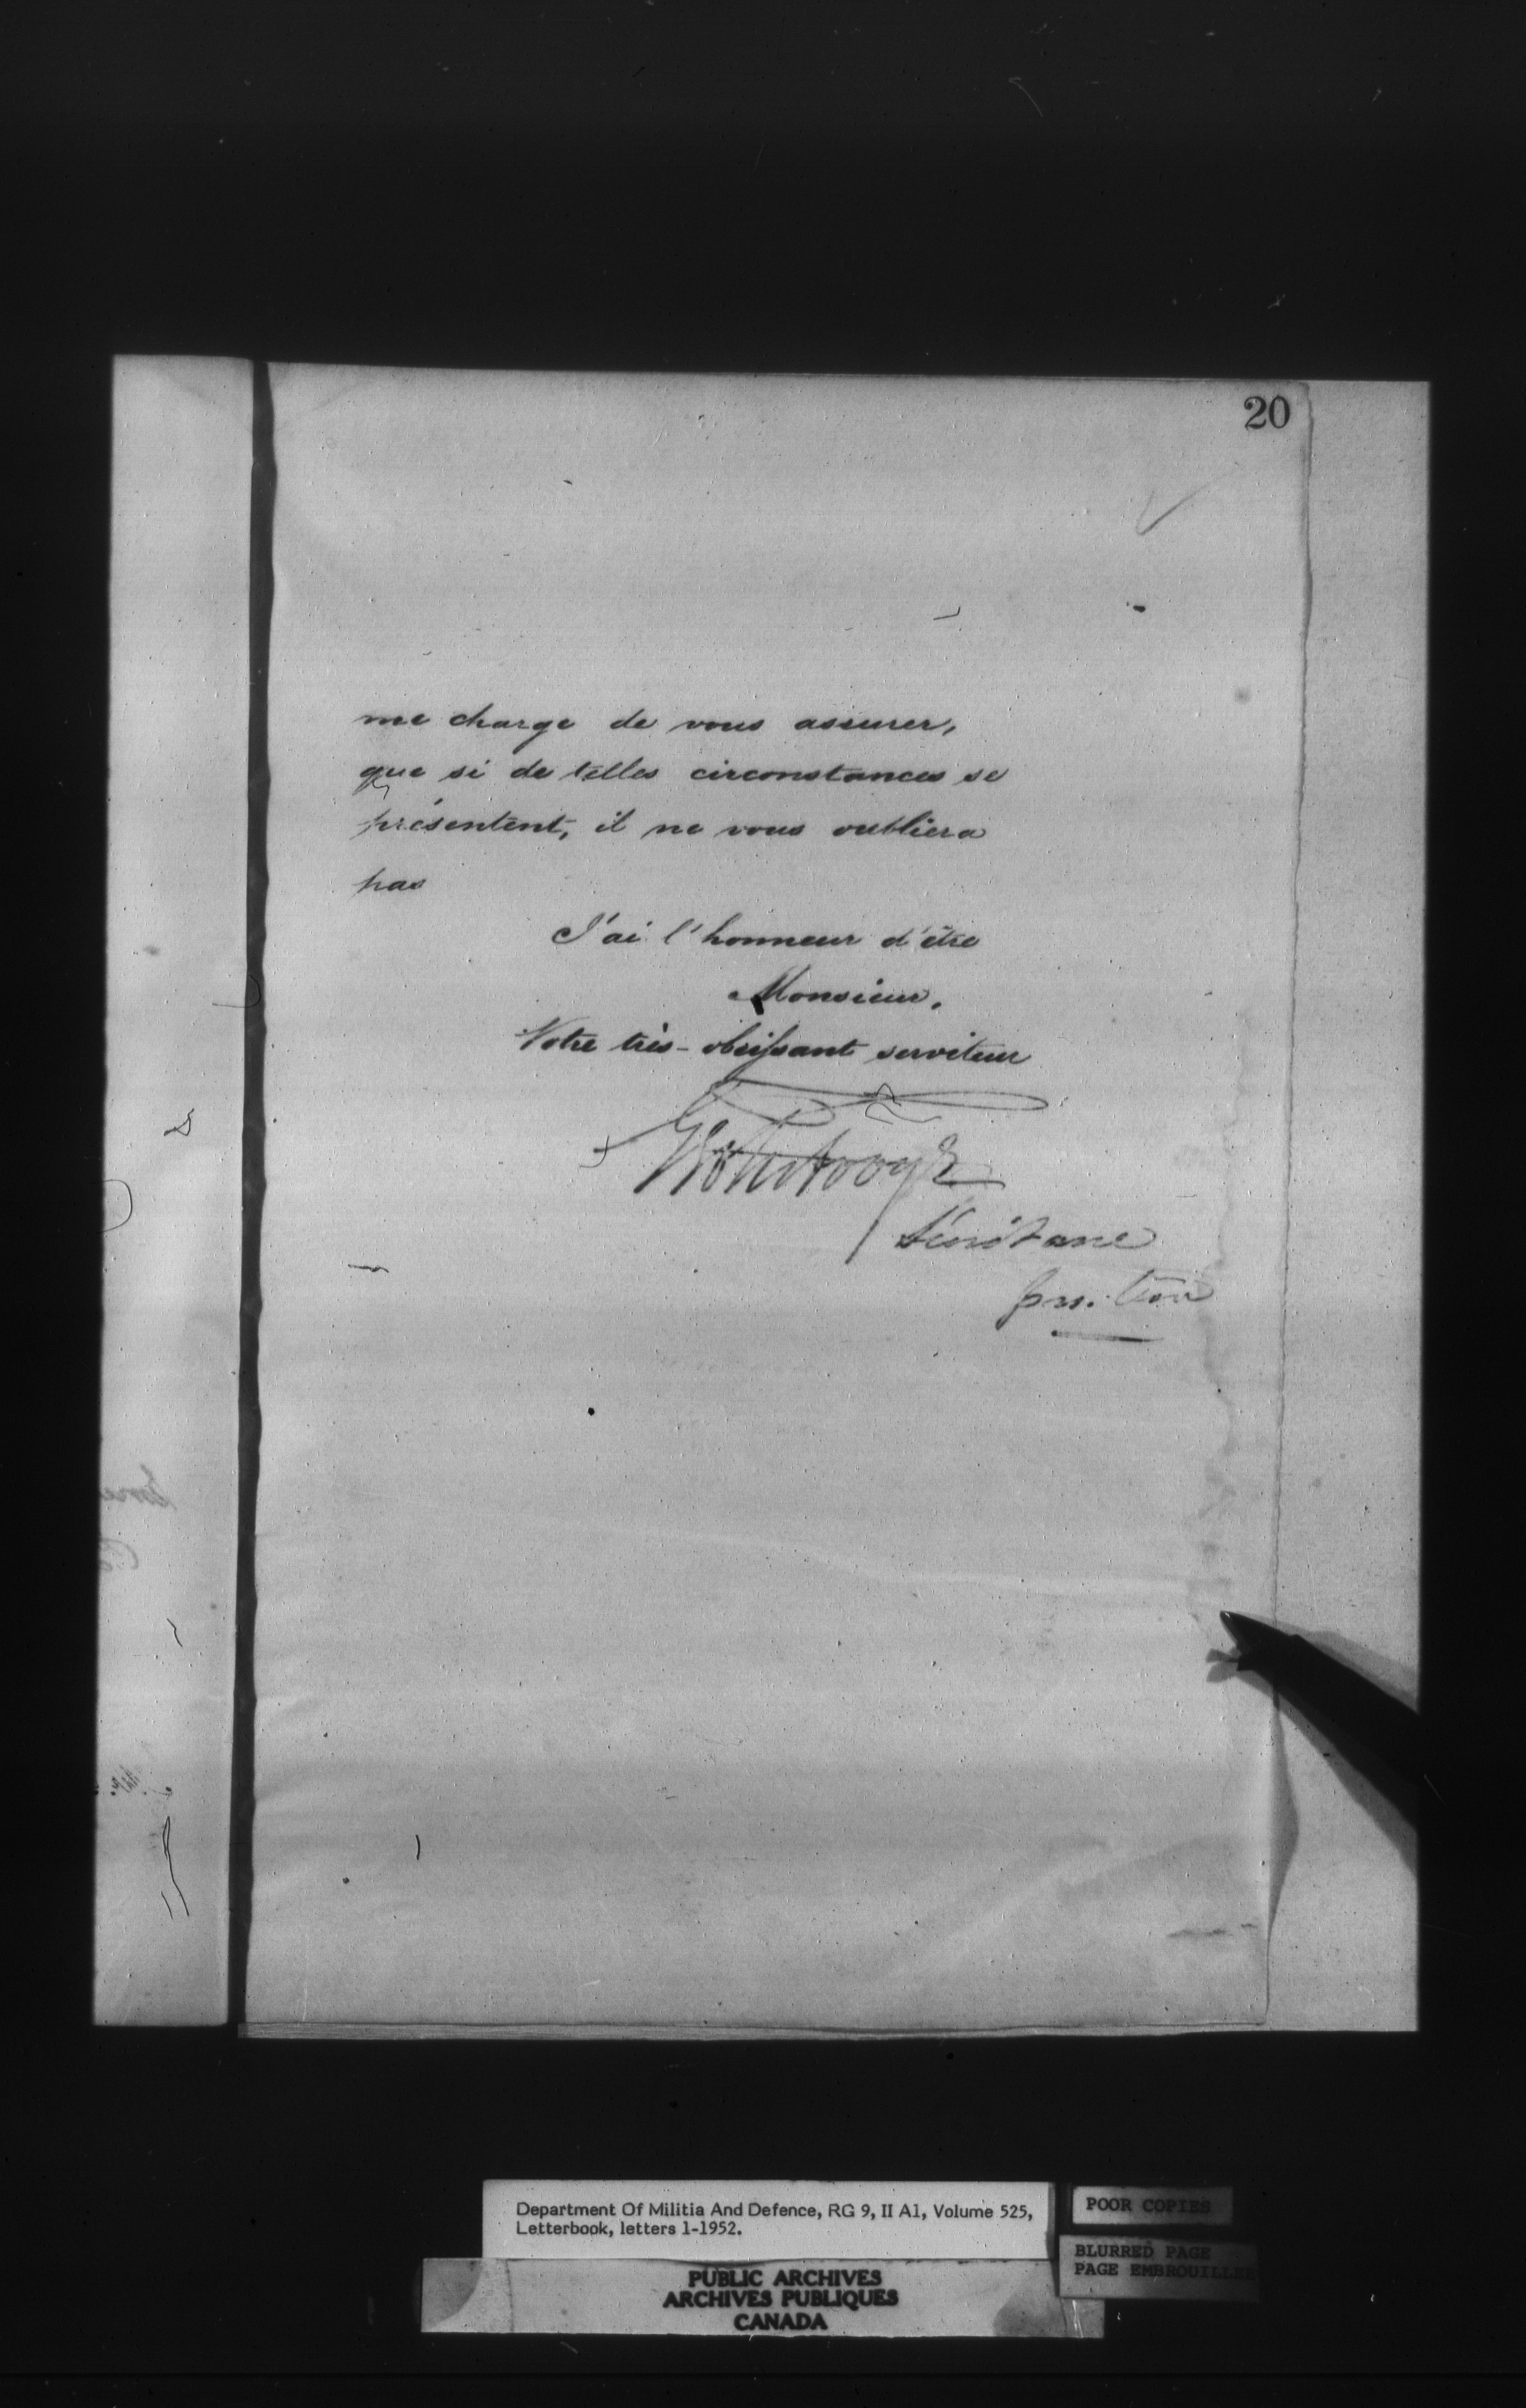 20
me charge de vous assurer,
que si de telles circonstances se
présentent, il ne vous oubliera
pas
J'ai l'honneur d'être
Monsieur,
Votre très-obéissant serviteur
Department Of Militia And Defence, RG 9, II A1, Volume 525,
Letterbook, letters 1-1952.
POOR COPIES
BLURRED PAGE
PAGE EMBROUILLEE
PUBLIC ARCHIVES
ARCHIVES PUBLIQUES
CANADA